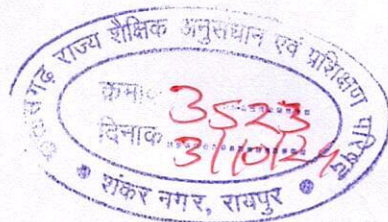 छत्तीसगढ़ राज्य शैक्षिक अनुसंधान एवं प्रशिक्षण परिषद्
क्रमांक 3523
दिनांक 3/10/24
शंकर नगर, रायपुर